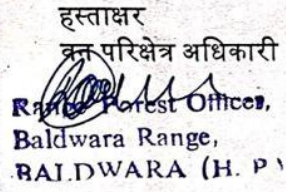 हस्ताक्षर
वन परिक्षेत्र अधिकारी
Range Forest Officer,
Baldwara Range,
BALDWARA (H. P)